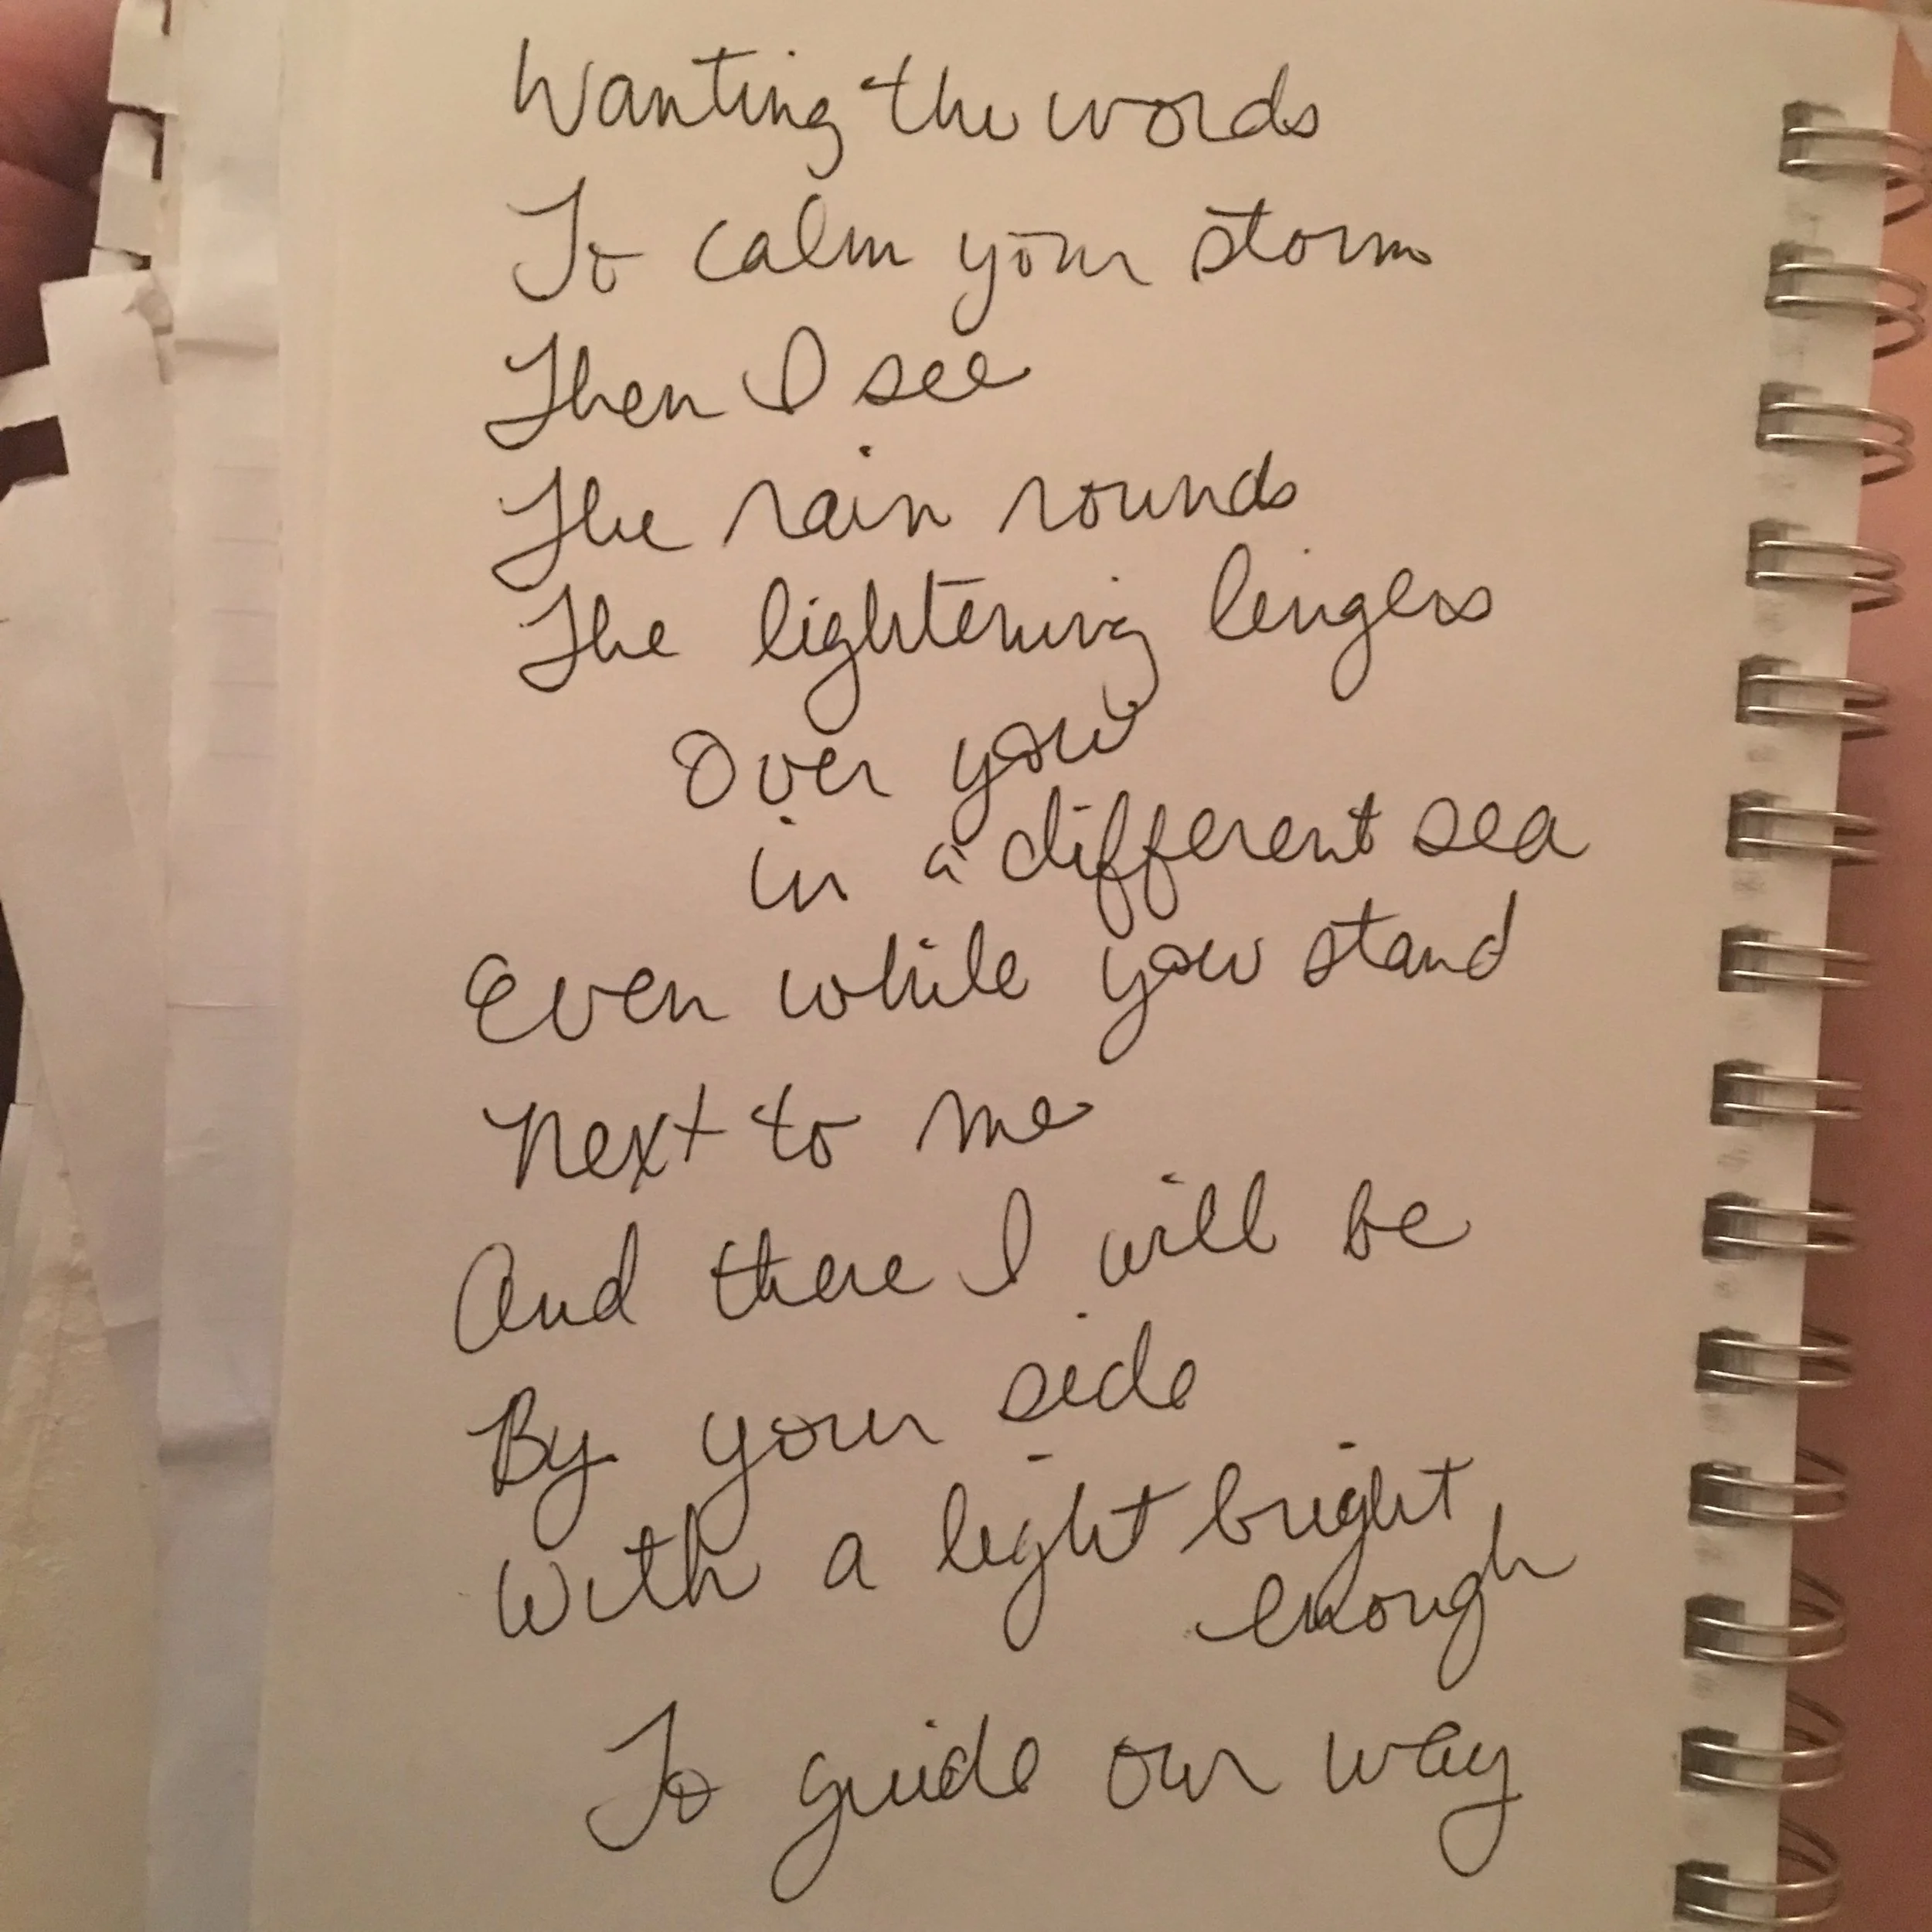 Wanting the words
To calm your storm
Then I see
The rain rounds
The lightening lingers
Over you
in a different sea
Even while you stand
Next to me
And there I will be
By your side
With a light bright
enough
To guide our way